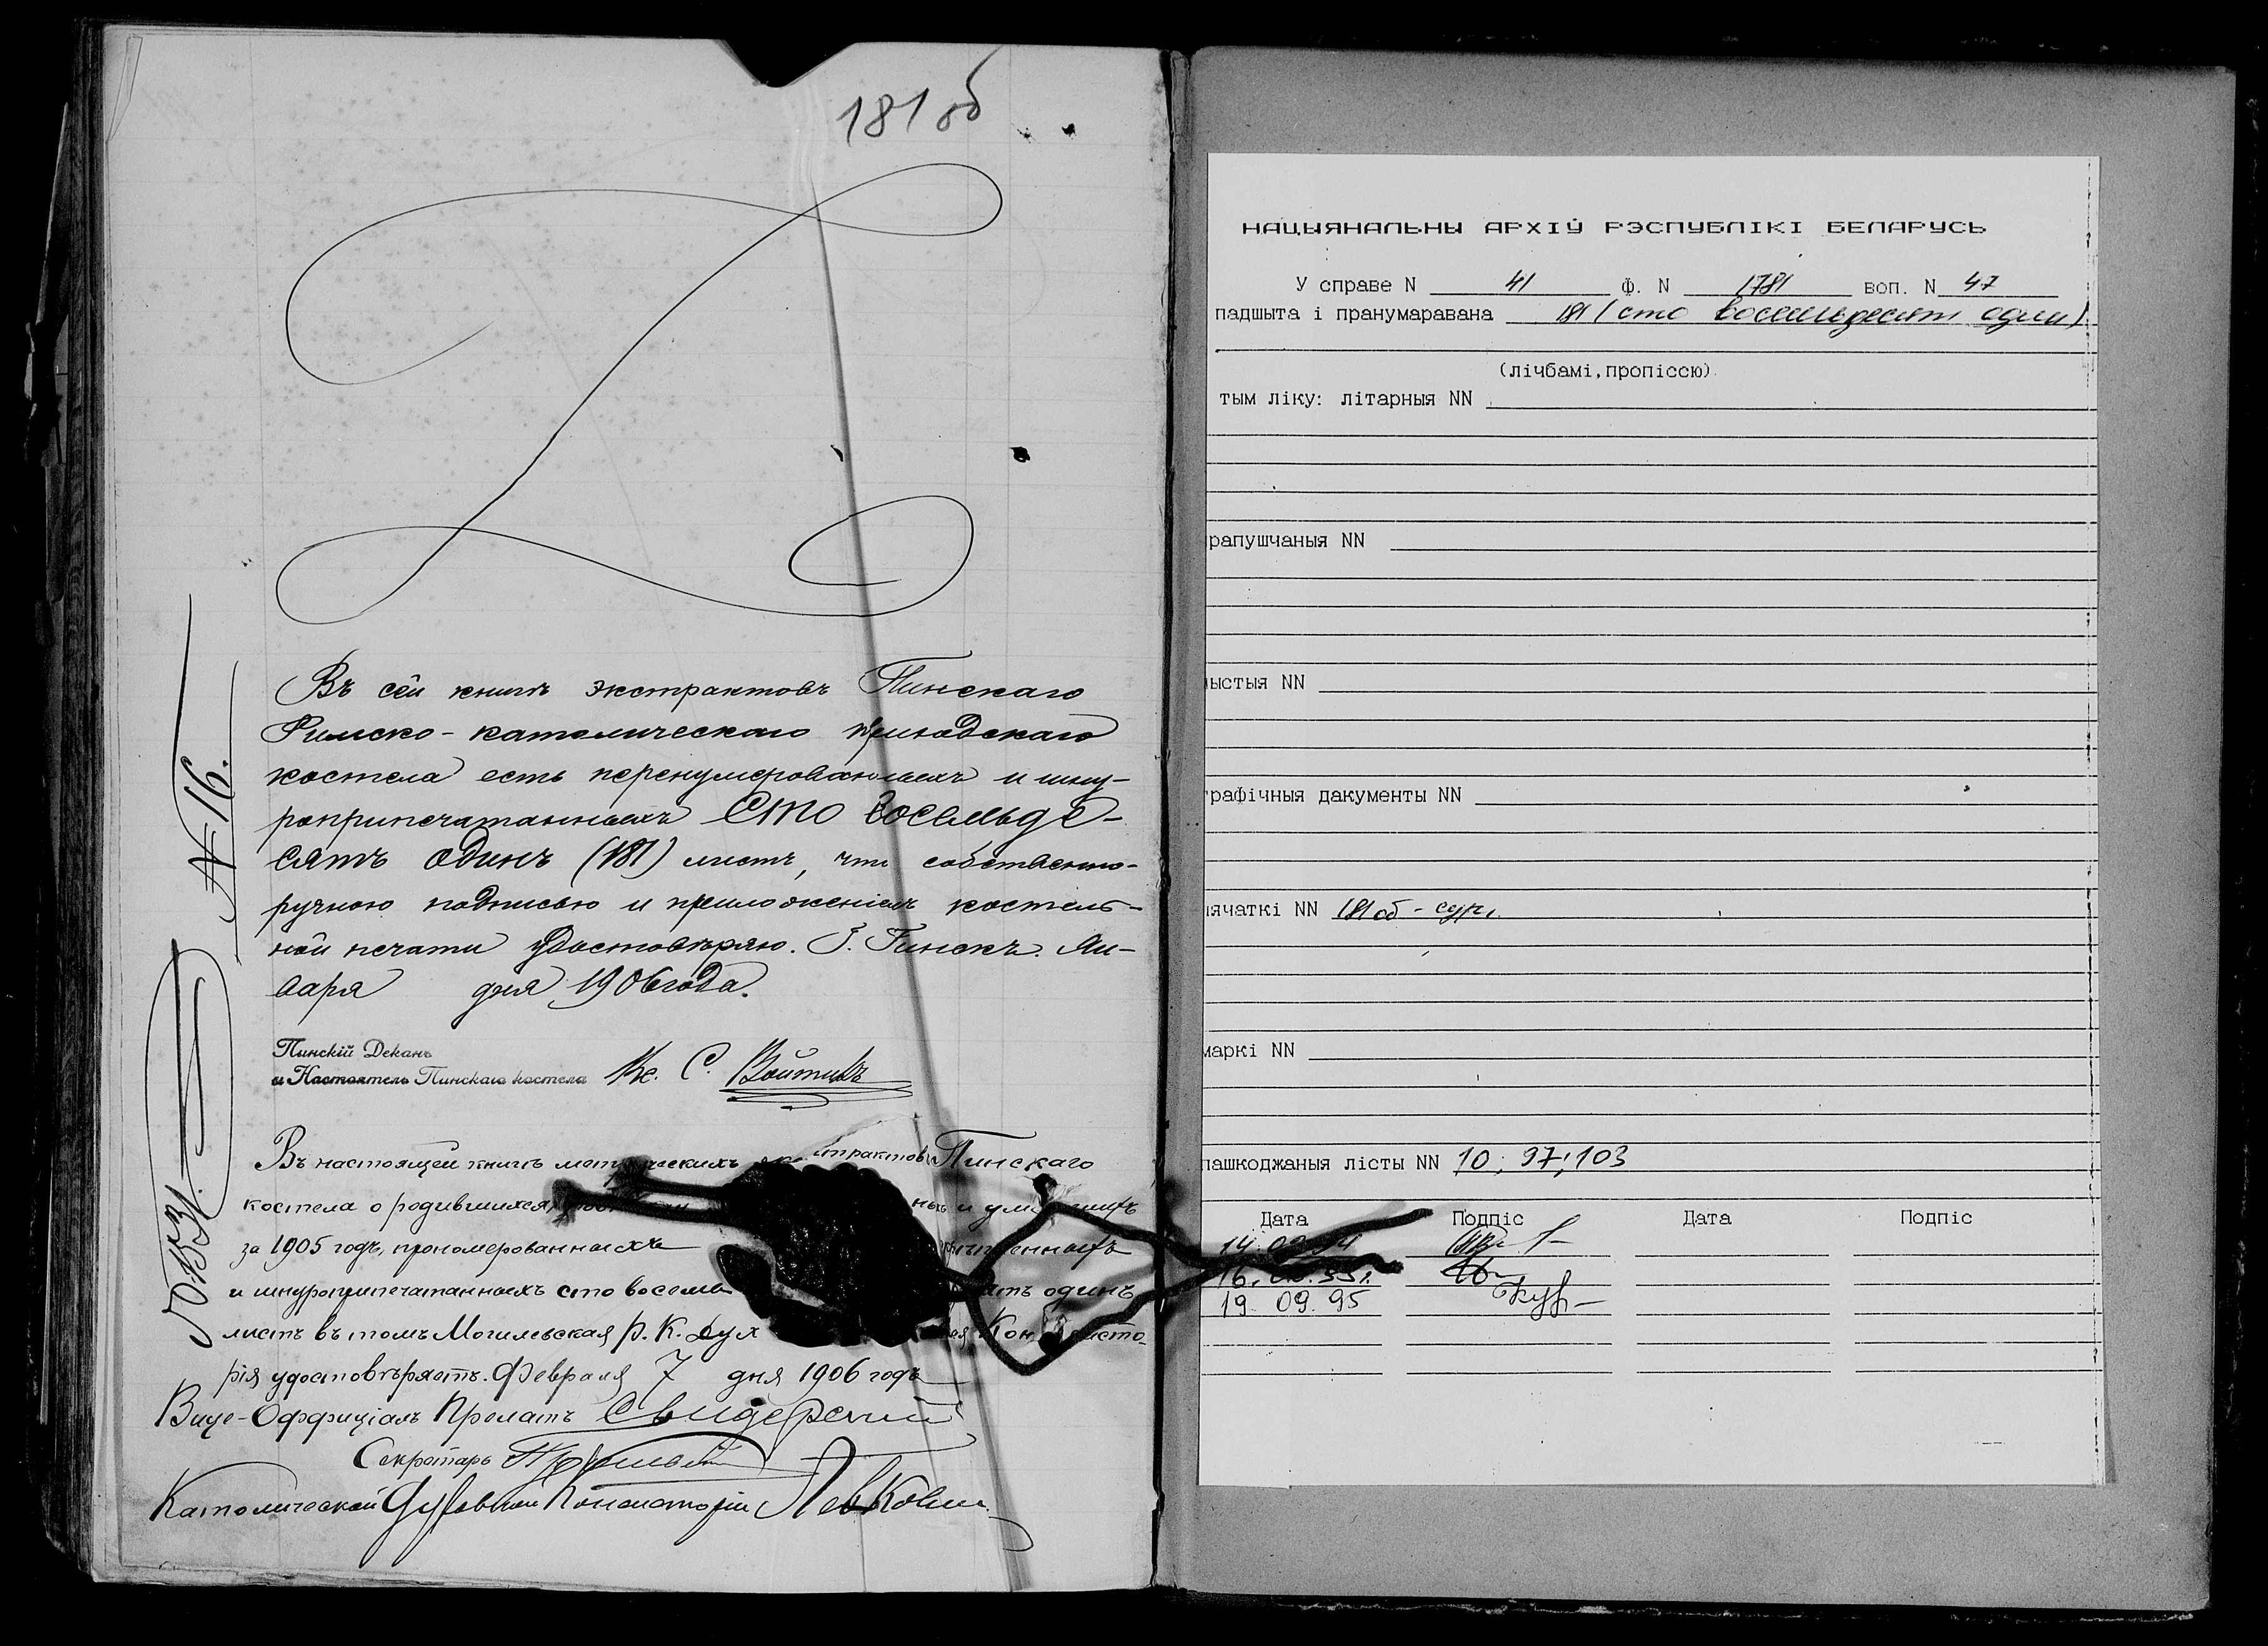 181 об
Въ сей книгѣ экстрактовъ Пинскаго
Римско-католическаго приходскаго
костела есть перенумерованныхъ и шну-
роприпечатанныхъ Сто восемьде-
сятъ одинъ (181) листъ, что собственно-
ручною подписью и приложеніемъ костель-
ной печати удостовѣряю. Г. Пинскъ. Ян-
варя дня 1906 года.
Пинскій Деканъ
и Настоятель Пинскаго костела Кс. С.
№ 16.
Въ настоящей книгѣ экстрактовъ Пинскаго
костела о родившихся, ныхъ и
за 1905 годъ, прономерованныхъ
и шнуроприпечатанныхъ сто восемь одинъ
листъ въ томъ Могилевская Р. К. Дух Кон систо-
рія удостовѣряетъ. Февраля 7 дня 1906 годъ
Вице-Оффиціалъ Прелатъ Свидерскій
Секретарь
Католической Духовной Консисторіи
НАЦЫЯНАЛЬНЫ АРХІЎ РЭСПУБЛІКІ БЕЛАРУСЬ
У справе N 41 Ф. N 1781 воп. N 47
падшыта і пранумаравана 181 (сто восемьдесят один)
(лічбамі,пропіссю)
тым ліку: літарныя NN
рапушчаныя NN
ыстыя NN
графічныя дакументы NN
ячаткі NN 181 об - сург.
маркі NN
пашкоджаныя лісты NN 10; 97; 103
Дата Подпіс Дата Подпіс
19 09.95